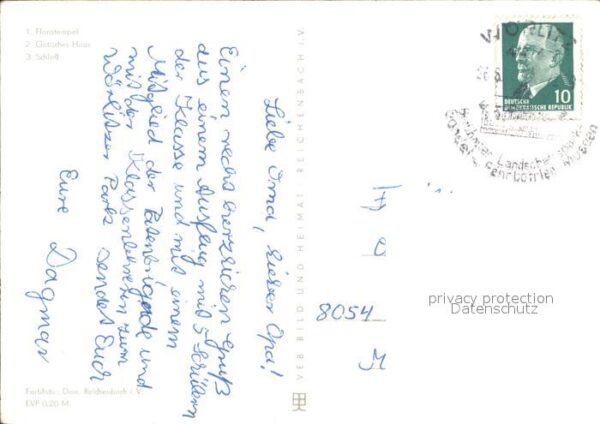 1. Floratempel
2. Gotisches Haus
3. Schloß
Liebe Oma, lieber Opa!
Einen recht herzlichen Gruß
aus einem Ausflug mit 5 Schülern
der Klasse und mit einem
Mitglied der Patenbrigade und
mit der Klassenlehrerin zum
Wörlitzer Park sendet Euch
Eure Dagmar
VEB BILD UND HEIMAT REICHENBACH I. V.
Farbfoto: Reichenbach i. V.
EVP 0,20 M
WÖRLITZ
DEUTSCHE
DEMOKRATISCHE REPUBLIK 10
Landschafts
Gondelfahrten Museen
8054
privacy protection
Datenschutz